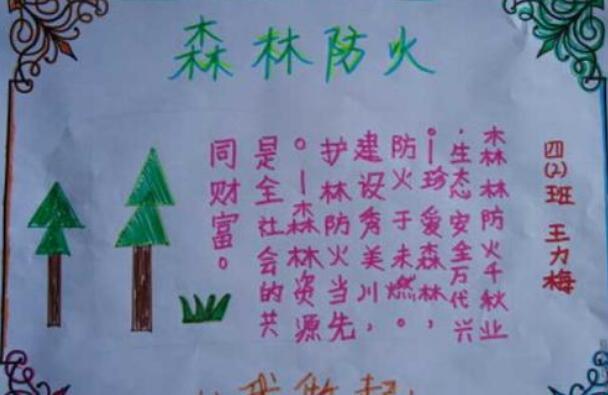 森林防火
四(2)班 王力梅
森林防火千秋业
·生态安全万代兴
。|珍爱森林,
防火于未燃。
建设秀美川,
护林防火当先
。|森林资源
是全社会的共
同财富。
从我做起